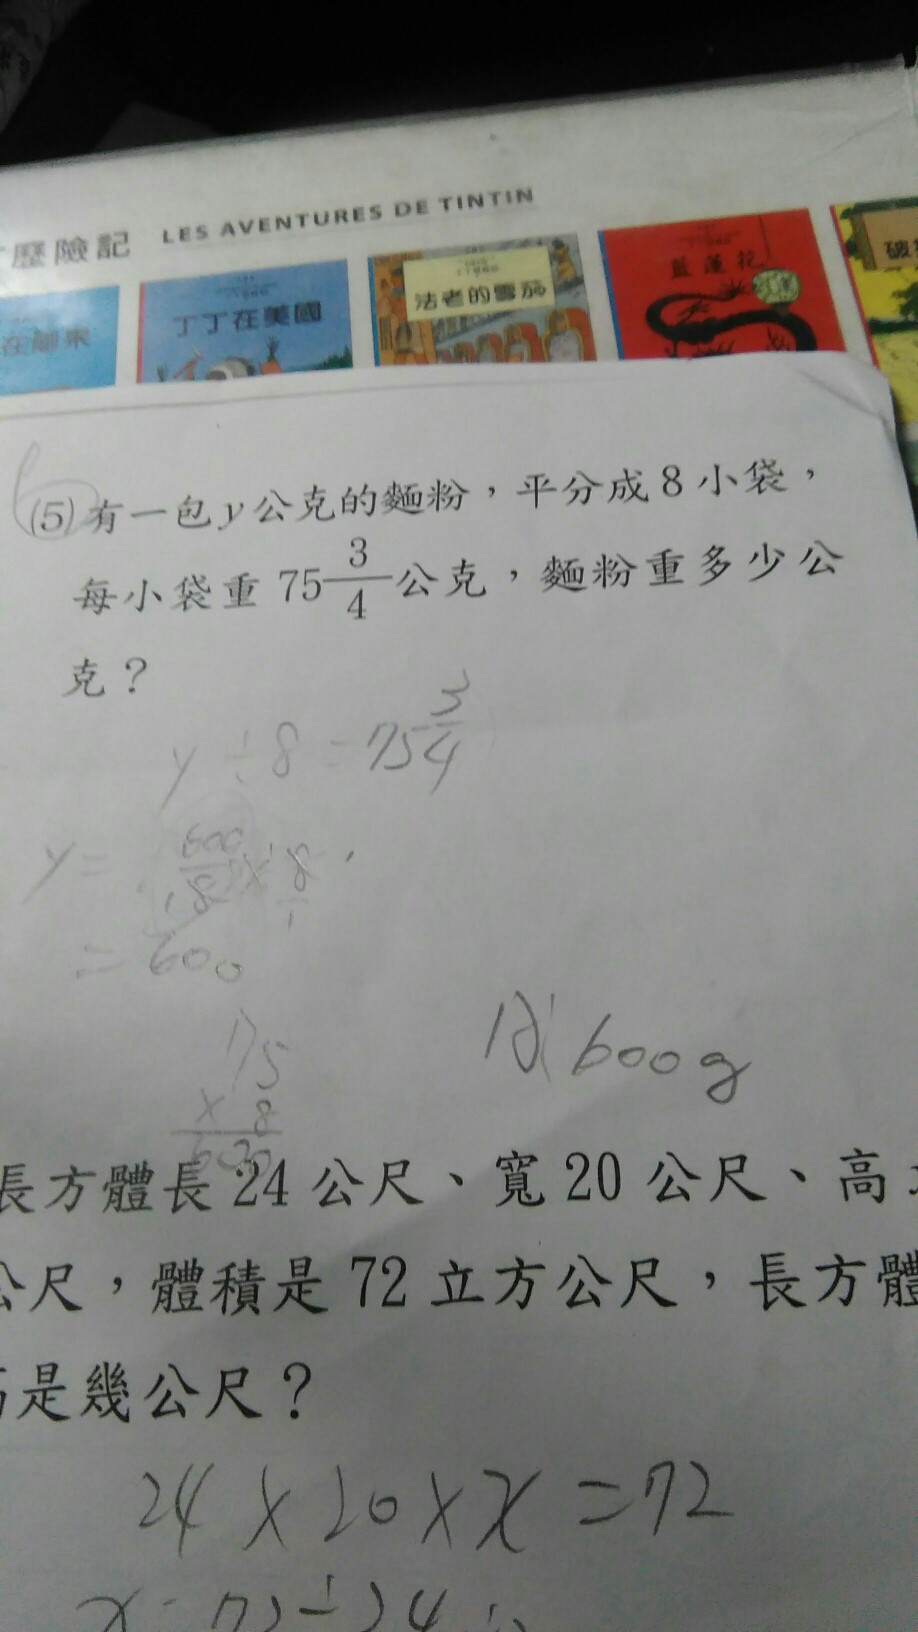 歷險記 LES AVENTURES DE TINTIN
丁丁在美國
法老的雪茄
藍蓮花
破
(5) 有一包y公克的麵粉，平分成8小袋，
每小袋重 75 3/4 公克，麵粉重多少公
克？
y ÷ 8 = 75 3/4
y = 600/8 × 8/1
= 600
75
× 8
600
A: 600g
長方體長 24 公尺、寬 20 公尺、高
公尺，體積是 72 立方公尺，長方體
是幾公尺？
24 × 20 × x = 72
x = 72 ÷ 24 ÷